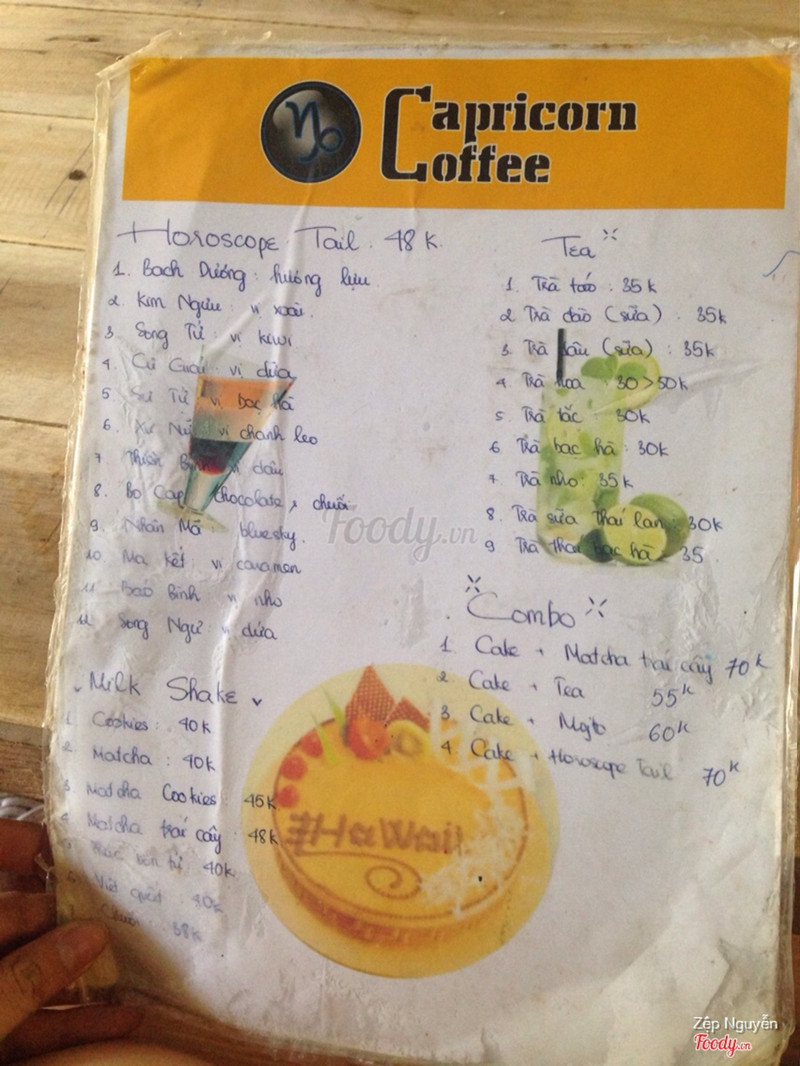 Capricorn
Coffee
Horoscope Tail. 48K.
1. Bạch Dương: hương lựu.
2. Kim Ngưu: vị xoài.
3. Song Tử: vị kiwi
4. Cự Giải: vị dừa
5. Sư Tử vị bạc hà
6. Xử Nữ vị chanh leo
7. Thiên Bình vị dâu
8. Bọ Cạp chocolate, chuối
9. Nhân Mã: bluesky.
10. Ma kết: vị caramen
11. Bảo Bình vị nho
12. Song Ngư: vị dứa
Milk Shake
1. Cookies: 40K
2. Matcha: 40K
3 Matcha Cookies: 45K
4. Matcha trái cây: 48K
40K
6 Việt quất 40K
7 Chuối: 38K
Tea
1. Trà táo: 35k
2 Trà đào (sữa): 35k
3. Trà dâu (sữa): 35k
4 Trà hoa: 30>50k
5. Trà tắc 30k
6. Trà bạc hà: 30k
7. Trà nho: 35k
8. Trà sữa thái lan: 30k
9 Trà thái bạc hà 35
Combo
1. Cake + Matcha trái cây 70K
2. Cake + Tea 55K
3 Cake + Mojto 60K
4 Cake + Horoscope Tail 70K
#HaWaii
Foody.vn
Zép Nguyễn
Foody.vn